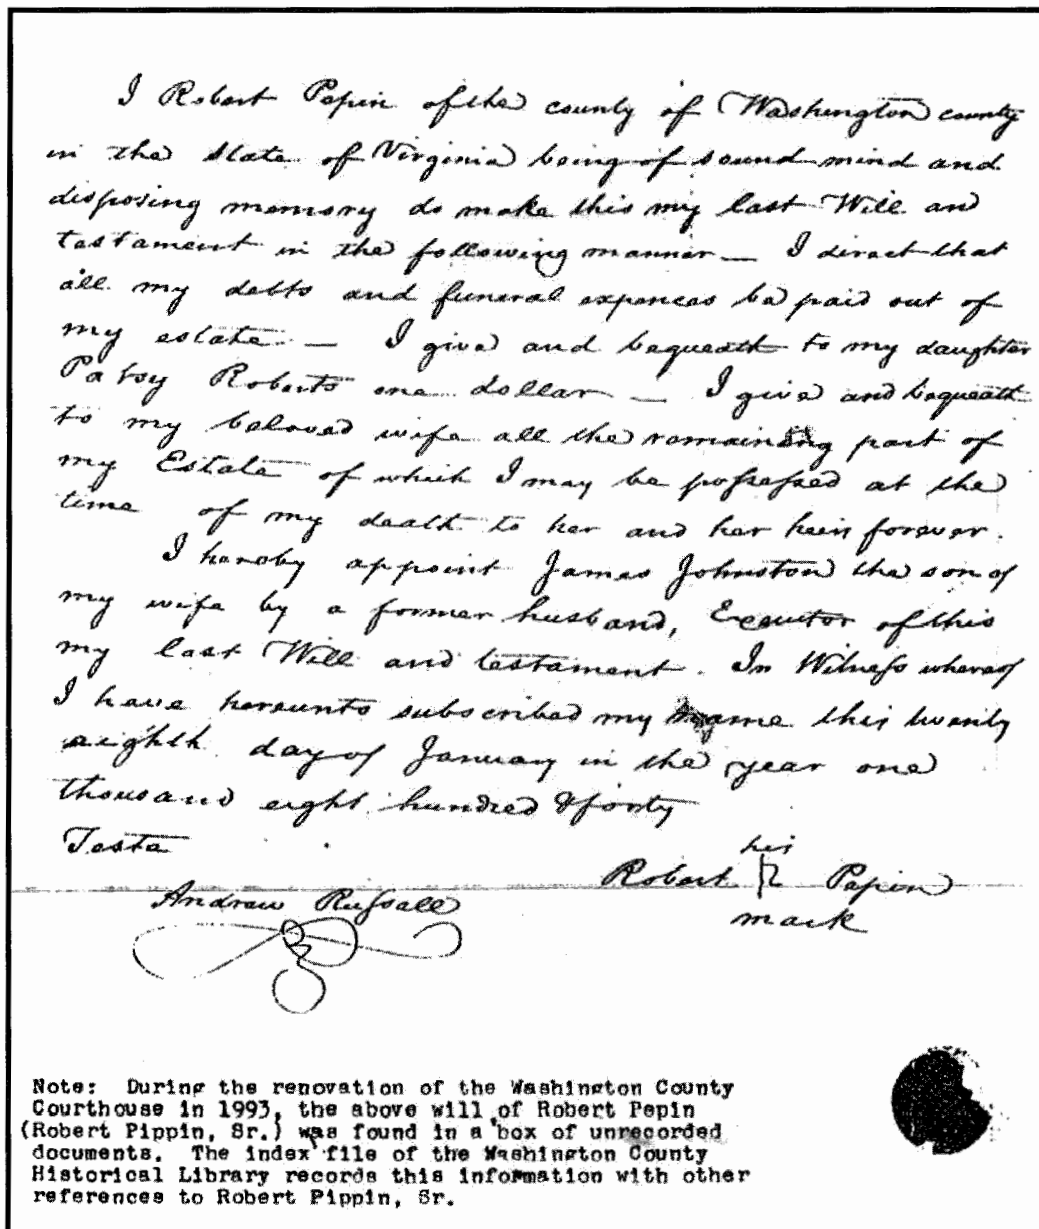 I Robert Pepin of the county of Washington county
in the State of Virginia being of sound mind and
disposing memory do make this my last Will and
testament in the following manner — I direct that
all my debts and funeral expences be paid out of
my estate — I give and bequeath to my daughter
Patsy Roberts one dollar — I give and bequeath
to my beloved wife all the remaining part of
my Estate of which I may be possessed at the
time of my death to her and her heirs forever.
I hereby appoint James Johnston the son of
my wife by a former husband, Executor of this
my last Will and testament. In Witness whereof
I have hereunto subscribed my name this twenty
eighth day of January in the year one
thousand eight hundred & forty
Teste
his
Robert R Pepin
mark
Andrew Russell
Note: During the renovation of the Washington County
Courthouse in 1993, the above will of Robert Pepin
(Robert Pippin, Sr.) was found in a box of unrecorded
documents. The index file of the Washington County
Historical Library records this information with other
references to Robert Pippin, Sr.